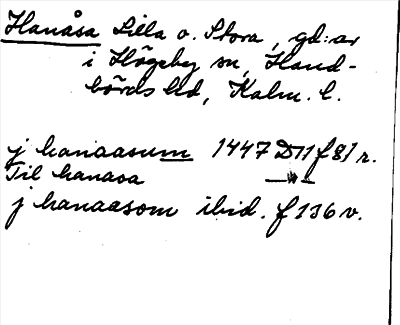 Hanåsa Lilla o. Stora, gd:ar
i Högsby sn, Hand-
börds hd, Kalm. l.
j hanaasum 1447 D11 f 81 r.
Til hanasa —"—
j hanaasom ibid. f 136 v.